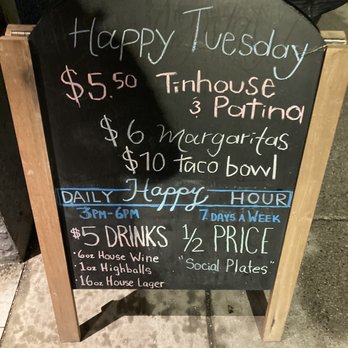 Happy Tuesday
$5.50 Tinhouse
& Patina
$6 Margaritas
$10 taco bowl
DAILY Happy HOUR
3PM-6PM 7 DAYS A WEEK
$5 DRINKS 1/2 PRICE
• 6oz House Wine "Social Plates"
• 1oz Highballs
• 16oz House Lager